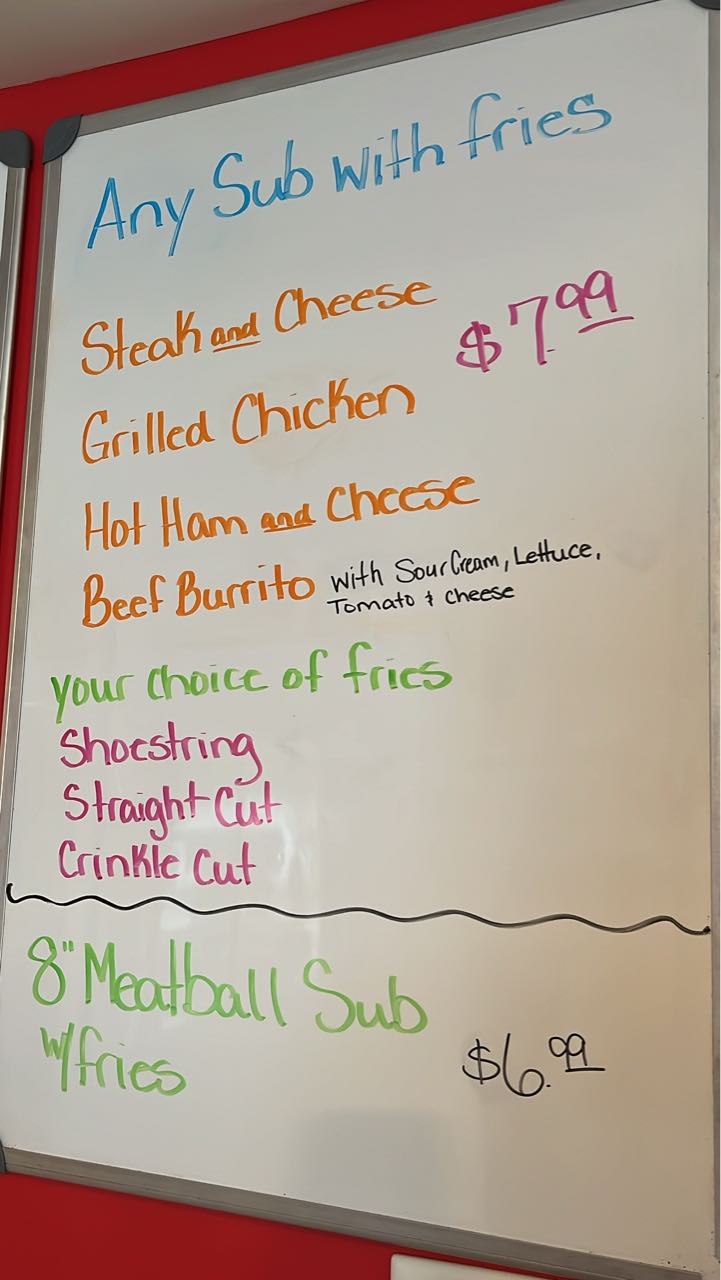 Any Sub with fries
Steak and Cheese
$7.99
Grilled Chicken
Hot Ham and Cheese
Beef Burrito with Sour Cream, Lettuce,
Tomato & cheese
your choice of fries
Shoestring
Straight Cut
Crinkle Cut
8" Meatball Sub
w/fries
$6.99